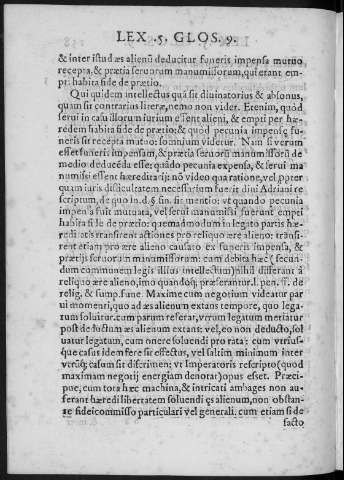 LEX .5. GLOS. 9.
& inter istud æs alienũ deducitur funeris impensa mutuo
recepta, & prætia seruorum manumissorum, qui erant em
pti habita fide de prætio.
Qui quidem intellectus quã sit diuinatorius & absonus,
quam sit contrarius literæ, nemo non videt. Etenim, quòd
serui in casu illorum iurium essent alieni, & empti per hæ-
redem habita fide de prætio: & quòd pecunia impensę fu-
neris sit recepta mutuo: somnium videtur. Nam si verum
esset funeris impensam, & prætia seruorũ manumissorũ de
medio deducẽda esse: quãdo pecunia expensa, & serui ma
numissi essent hæreditarij: nõ video qua ratione, vel ꝓpter
quam iuris difficultatem necessarium fuerit diui Adriani re
scriptum, de quo in d. § fin. fit mentio: vt quando pecunia
impensa fuit mutuata, vel serui manumissi fuerunt empti
habita fide de prætio: quemadmodum in legato partis hæ
reditatis transirent actiones pro reliquo ære alieno: transi-
rent etiam pro ære alieno causato ex funeris impensa, &
prætijs seruorum manumissorum: cum debita hæc (secun-
dum communem legis illius intellectum) nihil differant à
reliquo ære alieno, imo quandoq; præferantur. l. pen. ff. de
relig. & sump. fune. Maxime cum negotium videatur par
ui momenti, quo ad æs alienum extans tempore, quo lega-
tum soluitur. cum parum referat, vtrum legatum metiatur
post deductum æs alienum extans: vel, eo non deducto, sol
uatur legatum, cum onere soluendi pro rata: cum vtrius-
que casus idem fere sit effectus, vel saltim minimum inter
vtrũq; casum sit discrimen: vt Imperatoris rescripto (quod
maximam negotij energiam denotat) opus esset. Præci-
pue, cum tota hæc machina, & intricati ambages non au-
ferant hæredi libertatem soluendi ęs alienum, non obstan-
te fideicommisso particulari vel generali. cum etiam si de
facto